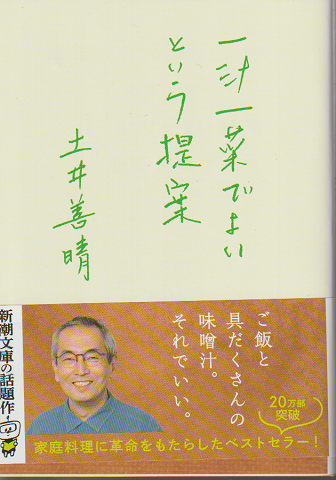 一汁一菜でよい
という提案
土井善晴
ご飯と
具だくさんの
味噌汁。
それでいい。
20万部
突破
家庭料理に革命をもたらしたベストセラー！
新潮文庫の話題作！